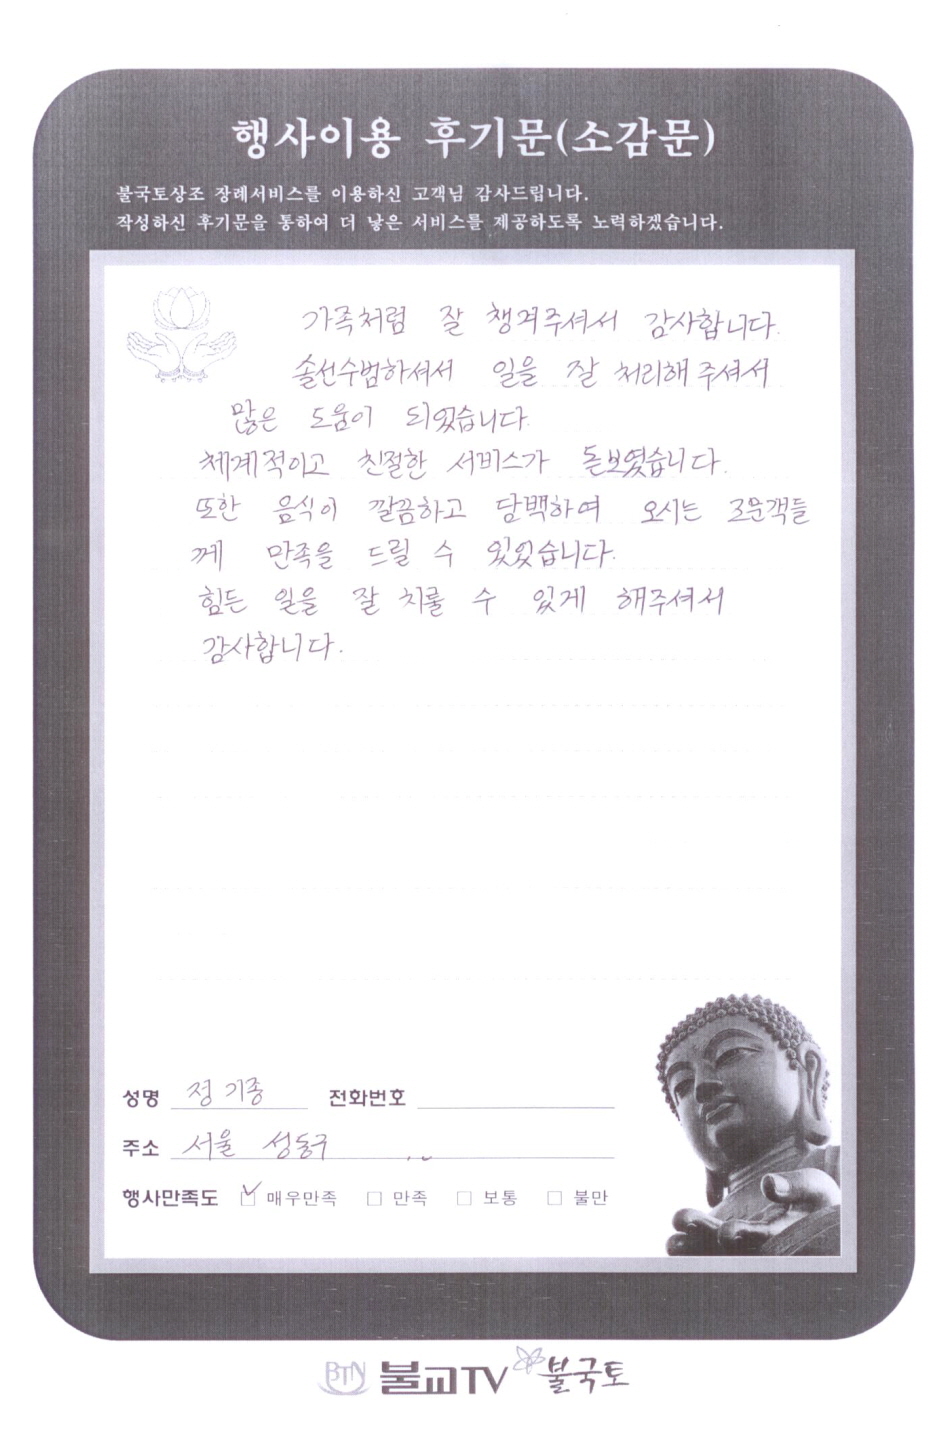 행사이용 후기문(소감문)
불국토상조 장례서비스를 이용하신 고객님 감사드립니다.
작성하신 후기문을 통하여 더 낳은 서비스를 제공하도록 노력하겠습니다.
가족처럼 잘 챙겨주셔서 감사합니다.
솔선수범하셔서 일을 잘 처리해 주셔서
많은 도움이 되었습니다.
체계적이고 친절한 서비스가 돋보였습니다.
또한 음식이 깔끔하고 담백하여 오시는 조문객들
께 만족을 드릴 수 있었습니다.
힘든 일을 잘 치룰 수 있게 해주셔서
감사합니다.
성명 정기종 전화번호
주소 서울 성동구
행사만족도 ☑ 매우만족 □ 만족 □ 보통 □ 불만
BTN 불교TV 불국토